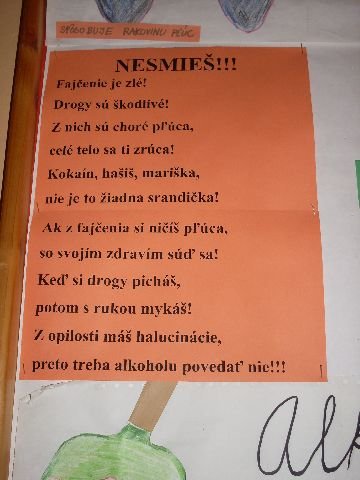 SPÔSOBUJE RAKOVINU PĽÚC
NESMIEŠ!!!
Fajčenie je zlé!
Drogy sú škodlivé!
Z nich sú choré pľúca,
celé telo sa ti zrúca!
Kokaín, hašiš, mariška,
nie je to žiadna srandička!
Ak z fajčenia si ničíš pľúca,
so svojím zdravím súď sa!
Keď si drogy picháš,
potom s rukou mykáš!
Z opilosti máš halucinácie,
preto treba alkoholu povedať nie!!!
Alk